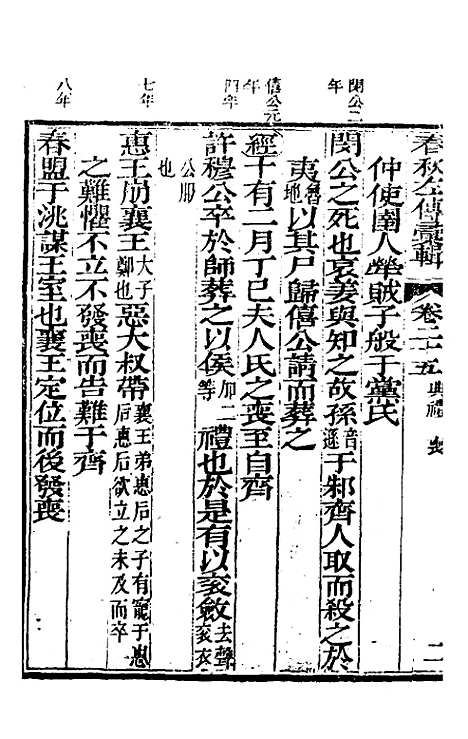 春秋左傳彙輯 卷二十五 典禮 喪 二
仲使圉人犖賊子般于黨氏
閔公二年
閔公之死也哀姜與知之故孫音遜于邾齊人取而殺之於
夷魯地以其尸歸僖公請而葬之
僖公元年
經十有二月丁巳夫人氏之喪至自齊
四年
許穆公卒於師葬之以侯加二等禮也於是有以袞斂去聲袞衣
公服也
七年
惠王崩襄王大子鄭也惡大叔帶襄王弟惠后之子有寵于惠后惠后欲立之未及而卒
之難懼不立不發喪而告難于齊
八年
春盟于洮謀王室也襄王定位而後發喪